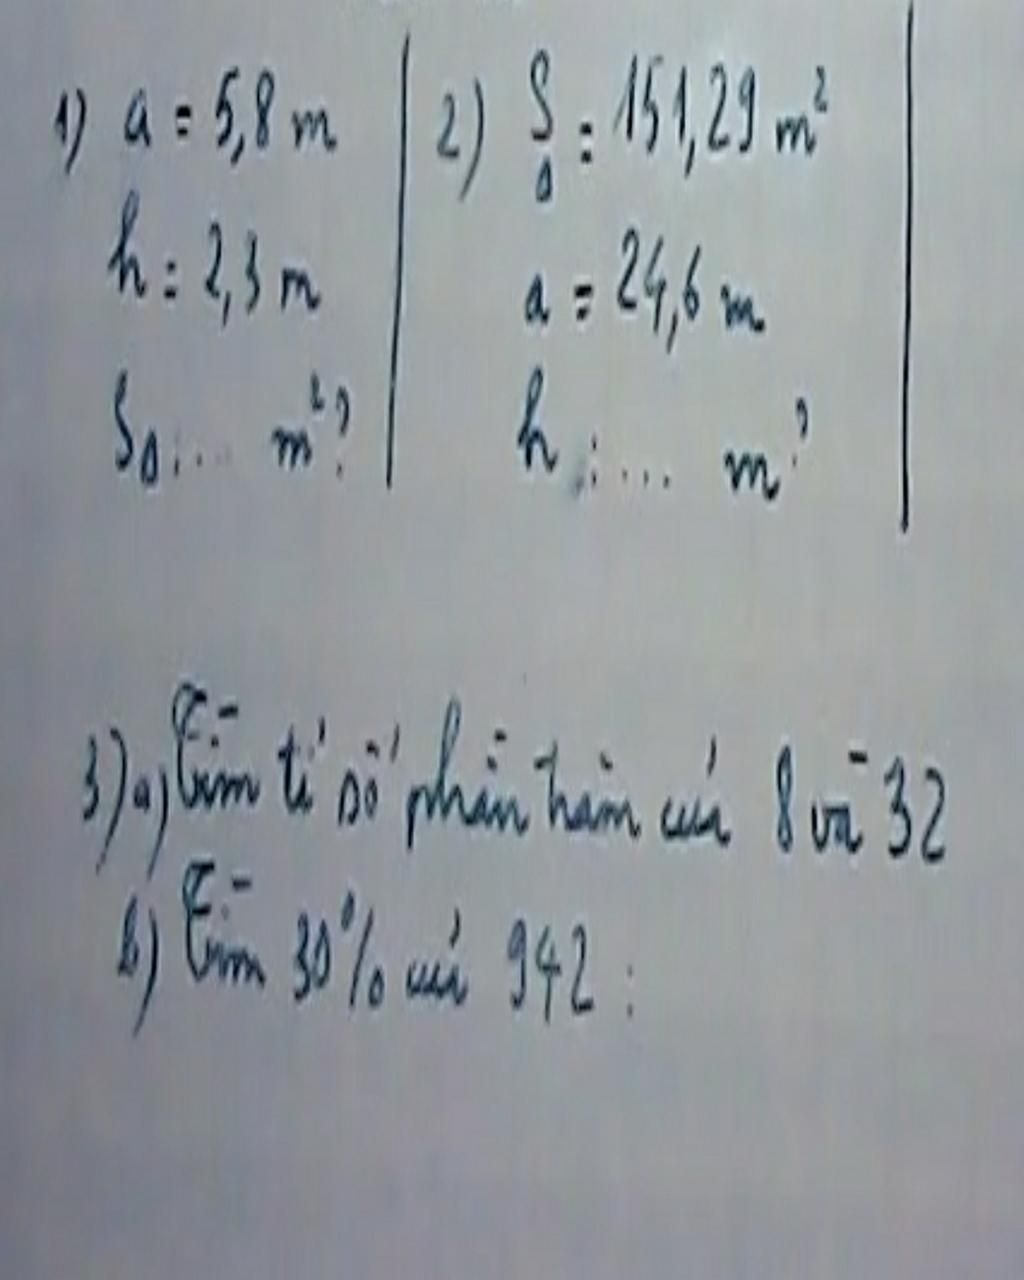 1) a = 5,8 m
h = 2,3 m
SΔ : ... m²?
2) SΔ = 151,29 m²
a = 24,6 m
h : ... m?
3) a) Tìm tỉ số phần trăm của 8 và 32
b) Tìm 30% của 942 :